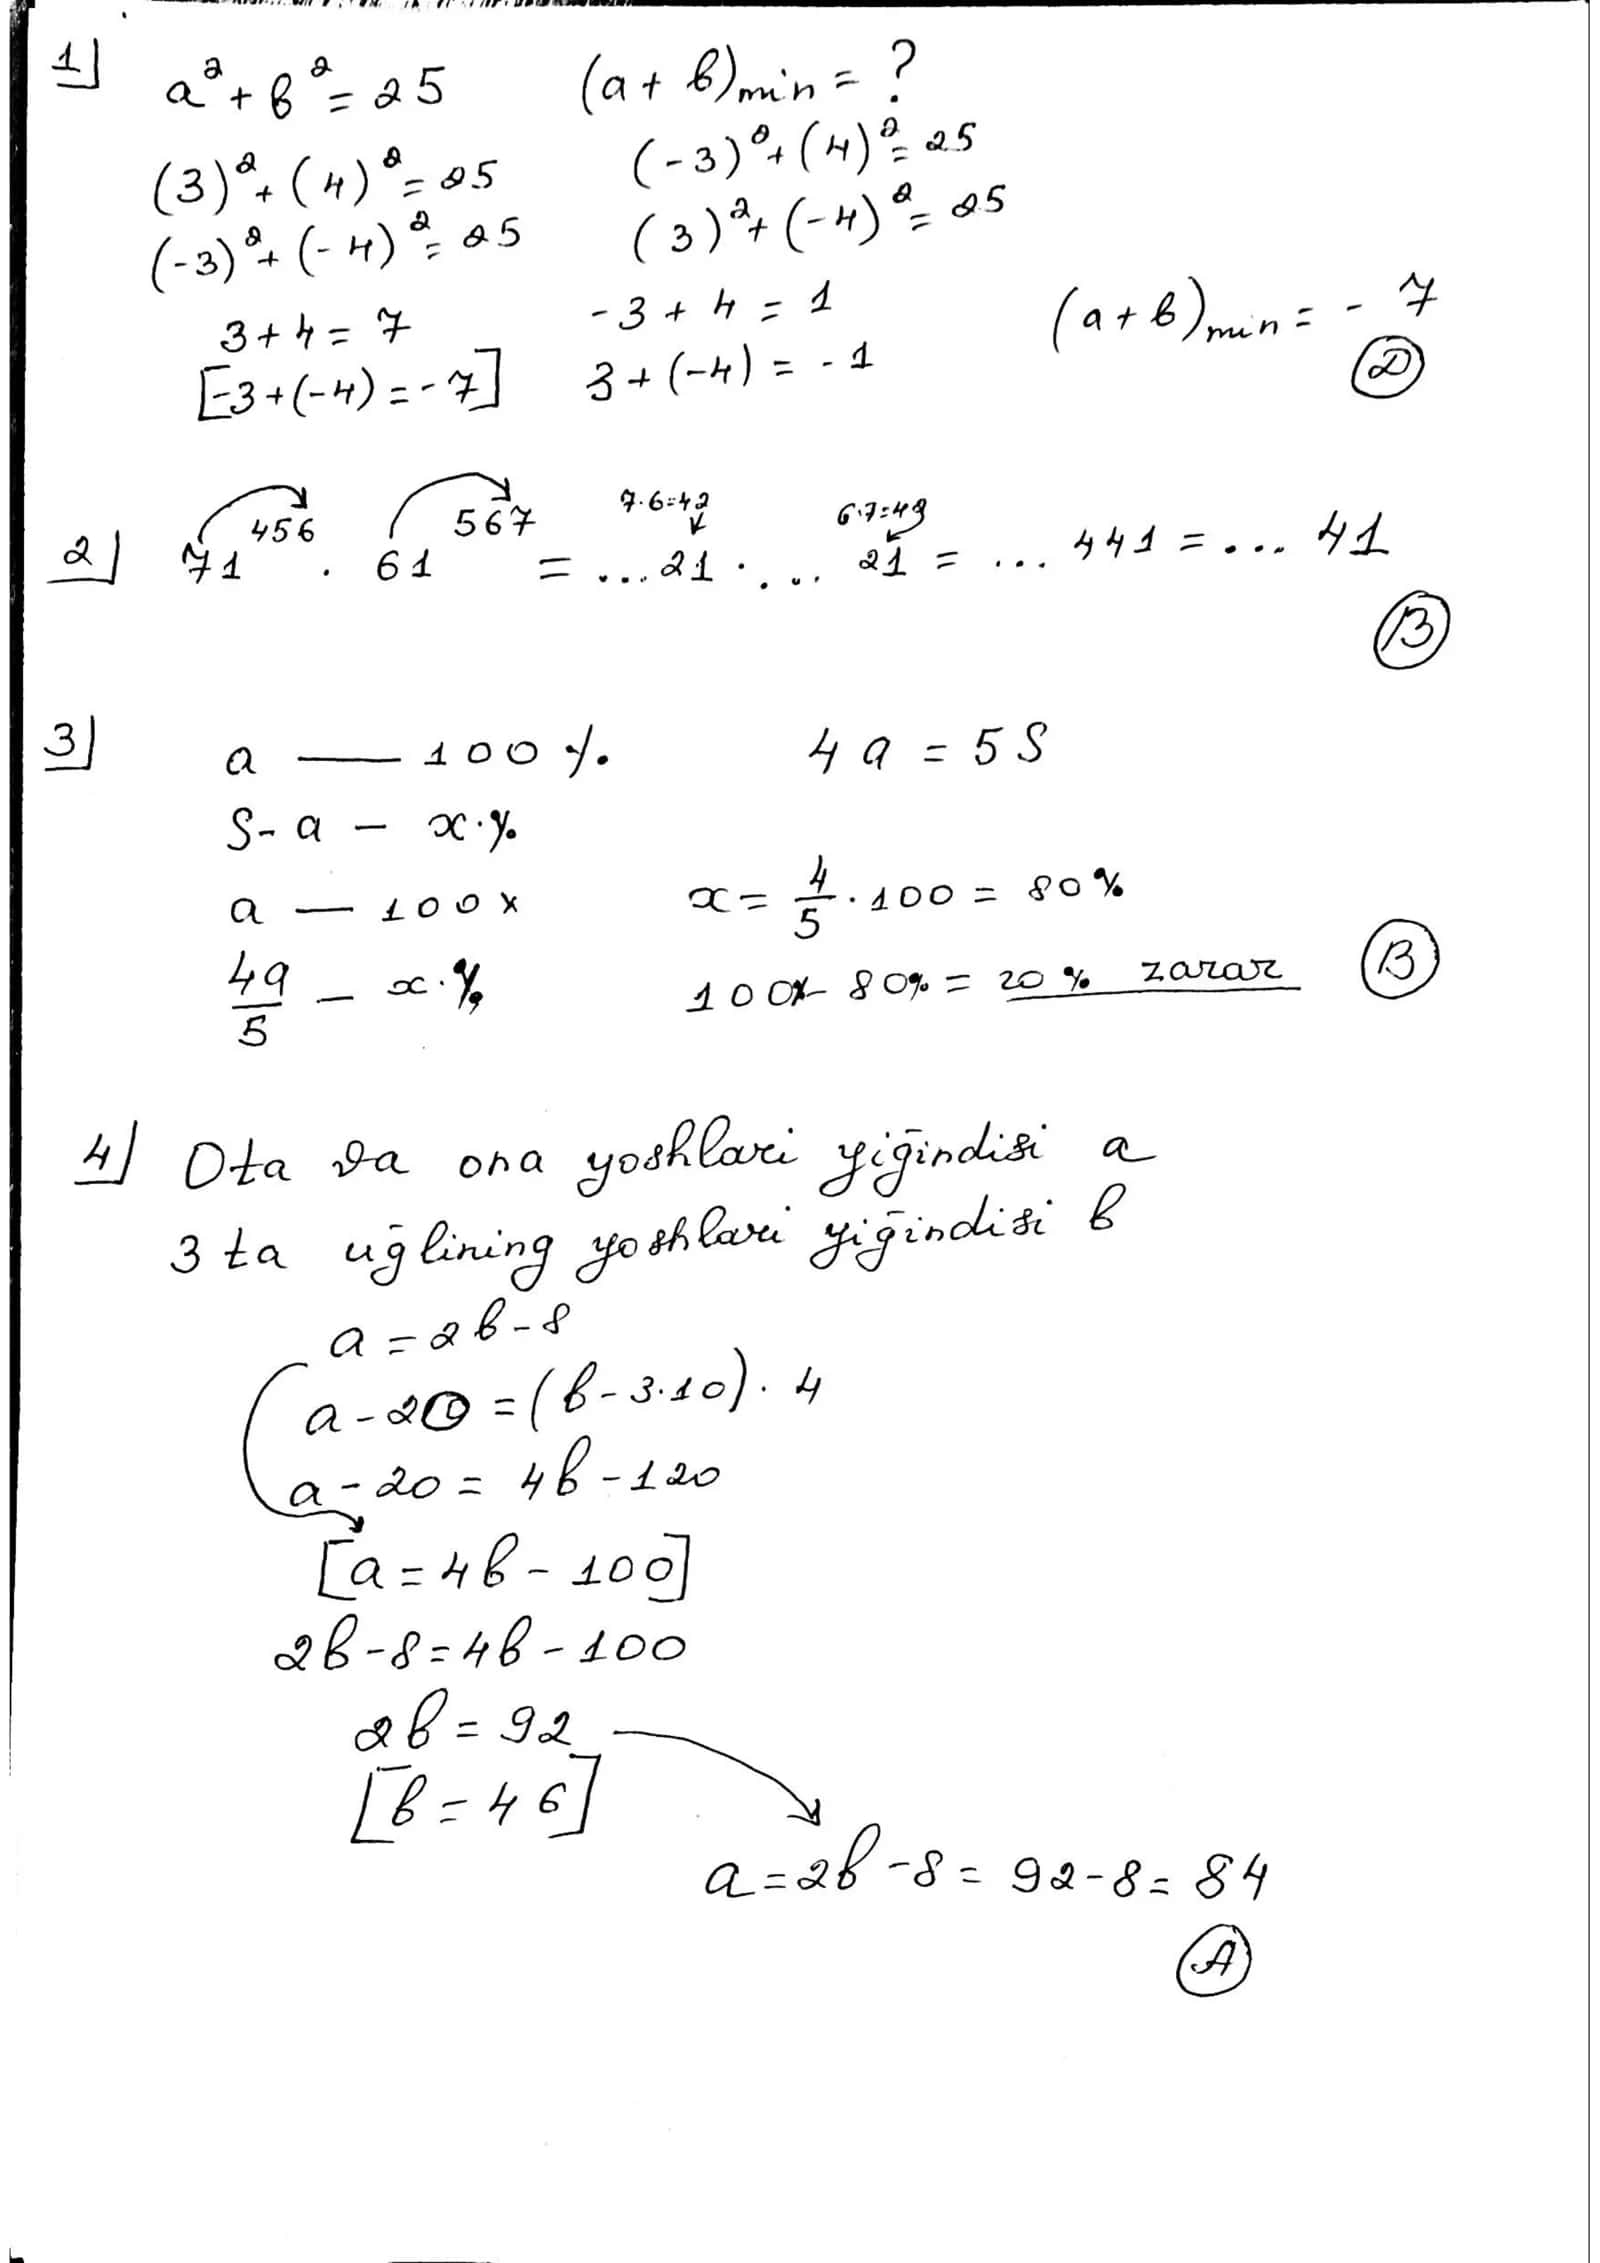 1) a² + b² = 25 (a + b)min = ?
(3)² + (4)² = 25 (-3)² + (4)² = 25
(-3)² + (-4)² = 25 (3)² + (-4)² = 25
3 + 4 = 7 -3 + 4 = 1 (a + b)min = - 7
[-3 + (-4) = -7] 3 + (-4) = -1 D
7·6=42 6·7=42
2) 71⁴⁵⁶ · 61⁵⁶⁷ = ...21 · ... 21 = ... 441 = ... 41
B
3) a — 100 % 4a = 5S
S - a — x·%
a — 100% x = 4/5 · 100 = 80%
4a/5 — x·% 100% - 80% = 20% zarar B
4) Ota va ona yoshlari yiğindisi a
3 ta uğlining yoshlari yiğindisi b
a = 2b - 8
a - 20 = (b - 3·10) · 4
a - 20 = 4b - 120
[a = 4b - 100]
2b - 8 = 4b - 100
2b = 92
[b = 46]
a = 2b - 8 = 92 - 8 = 84
A